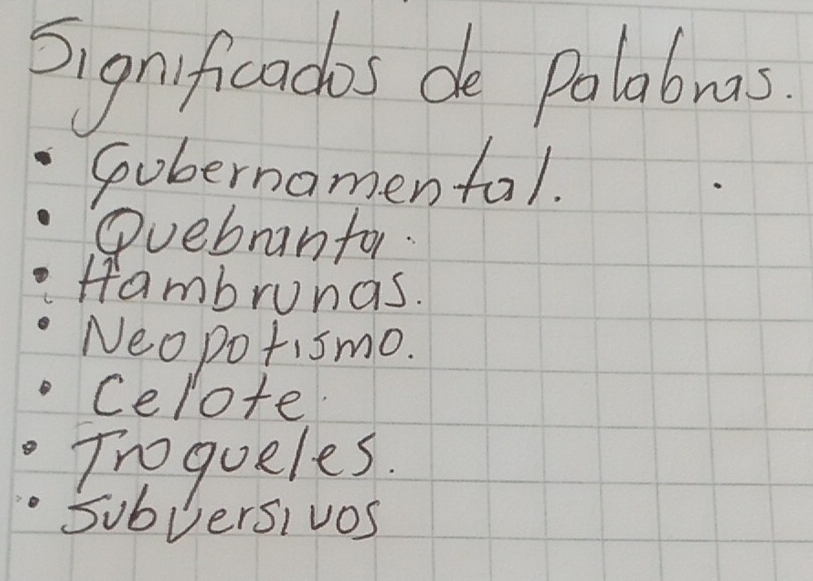 Significados de Palabras.
• Gubernamental.
• Quebranta.
• Hambrunas.
• Neopotismo.
• Celote.
• Troqueles.
• Subversivos